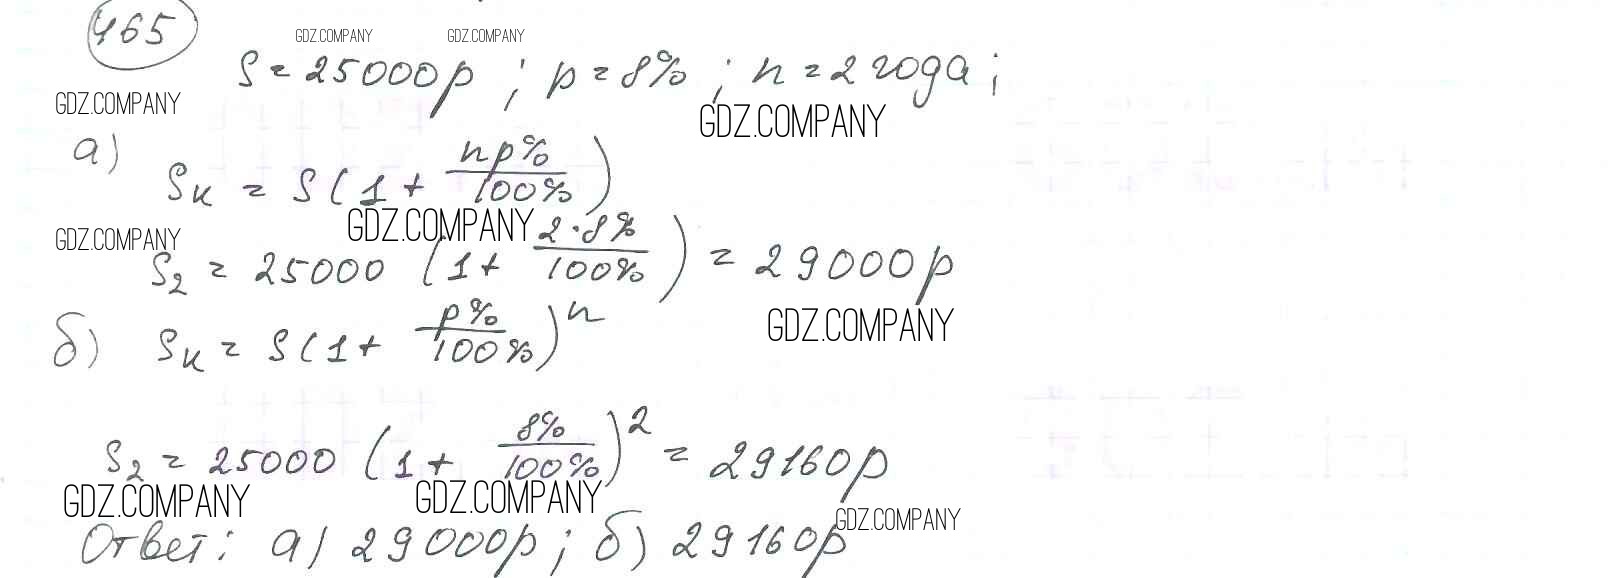 465
GDZ.COMPANY GDZ.COMPANY
S = 25000р ; p = 8% ; n = 2 года ;
GDZ.COMPANY GDZ.COMPANY
а) Sк = S(1 + np%/100%)
GDZ.COMPANY GDZ.COMPANY
S₂ = 25000 (1 + 2·8%/100%) = 29000р
GDZ.COMPANY
б) Sк = S(1 + p%/100%)ⁿ
S₂ = 25000 (1 + 8%/100%)² = 29160р
GDZ.COMPANY GDZ.COMPANY GDZ.COMPANY
Ответ: а) 29000р ; б) 29160р